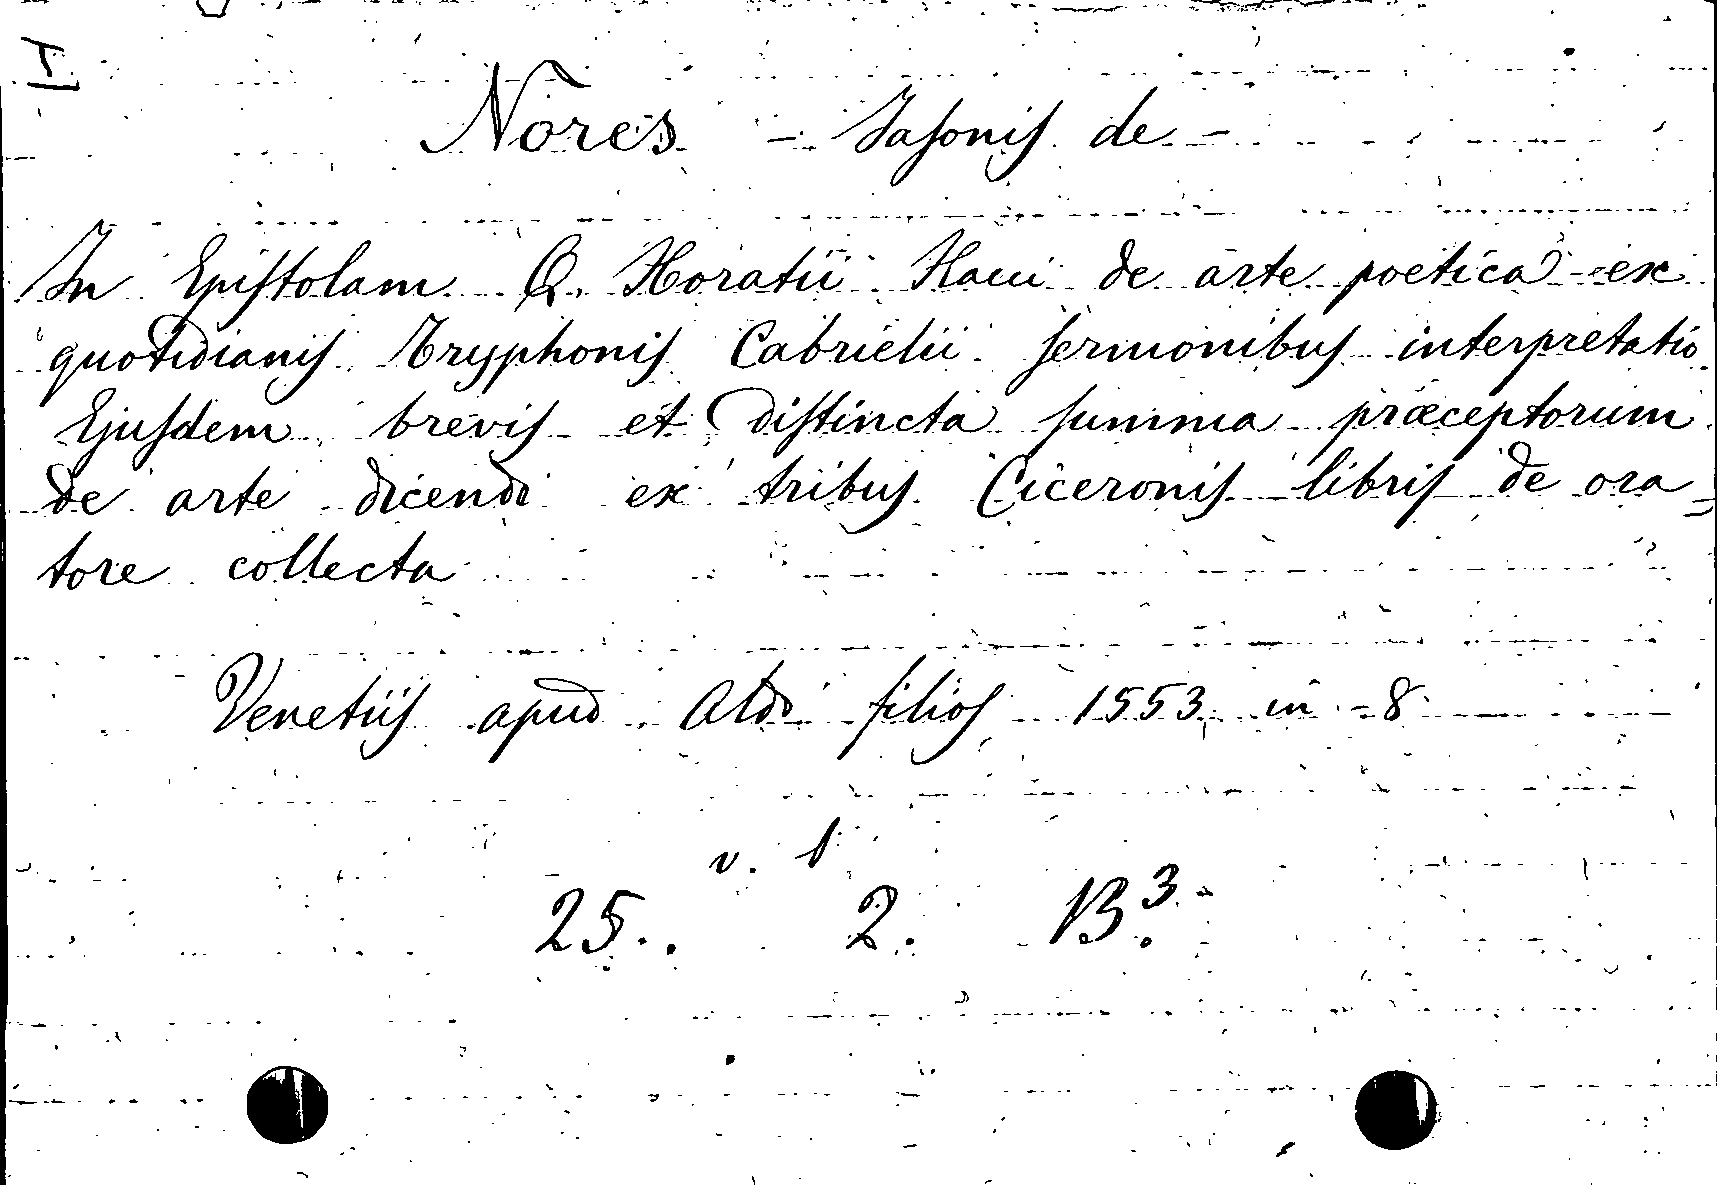 Nores - Jasonis de -
In Epistolam Q. Horatii Flacci de arte poetica ex
quotidianis Tryphonis Cabrielii sermonibus interpretatio
Ejusdem brevis et distincta summa præceptorum
de arte dicendi ex tribus Ciceronis libris de ora=
tore collecta
Venetiis apud Aldi filios 1553 in-8
v. f
25. 2. B³.